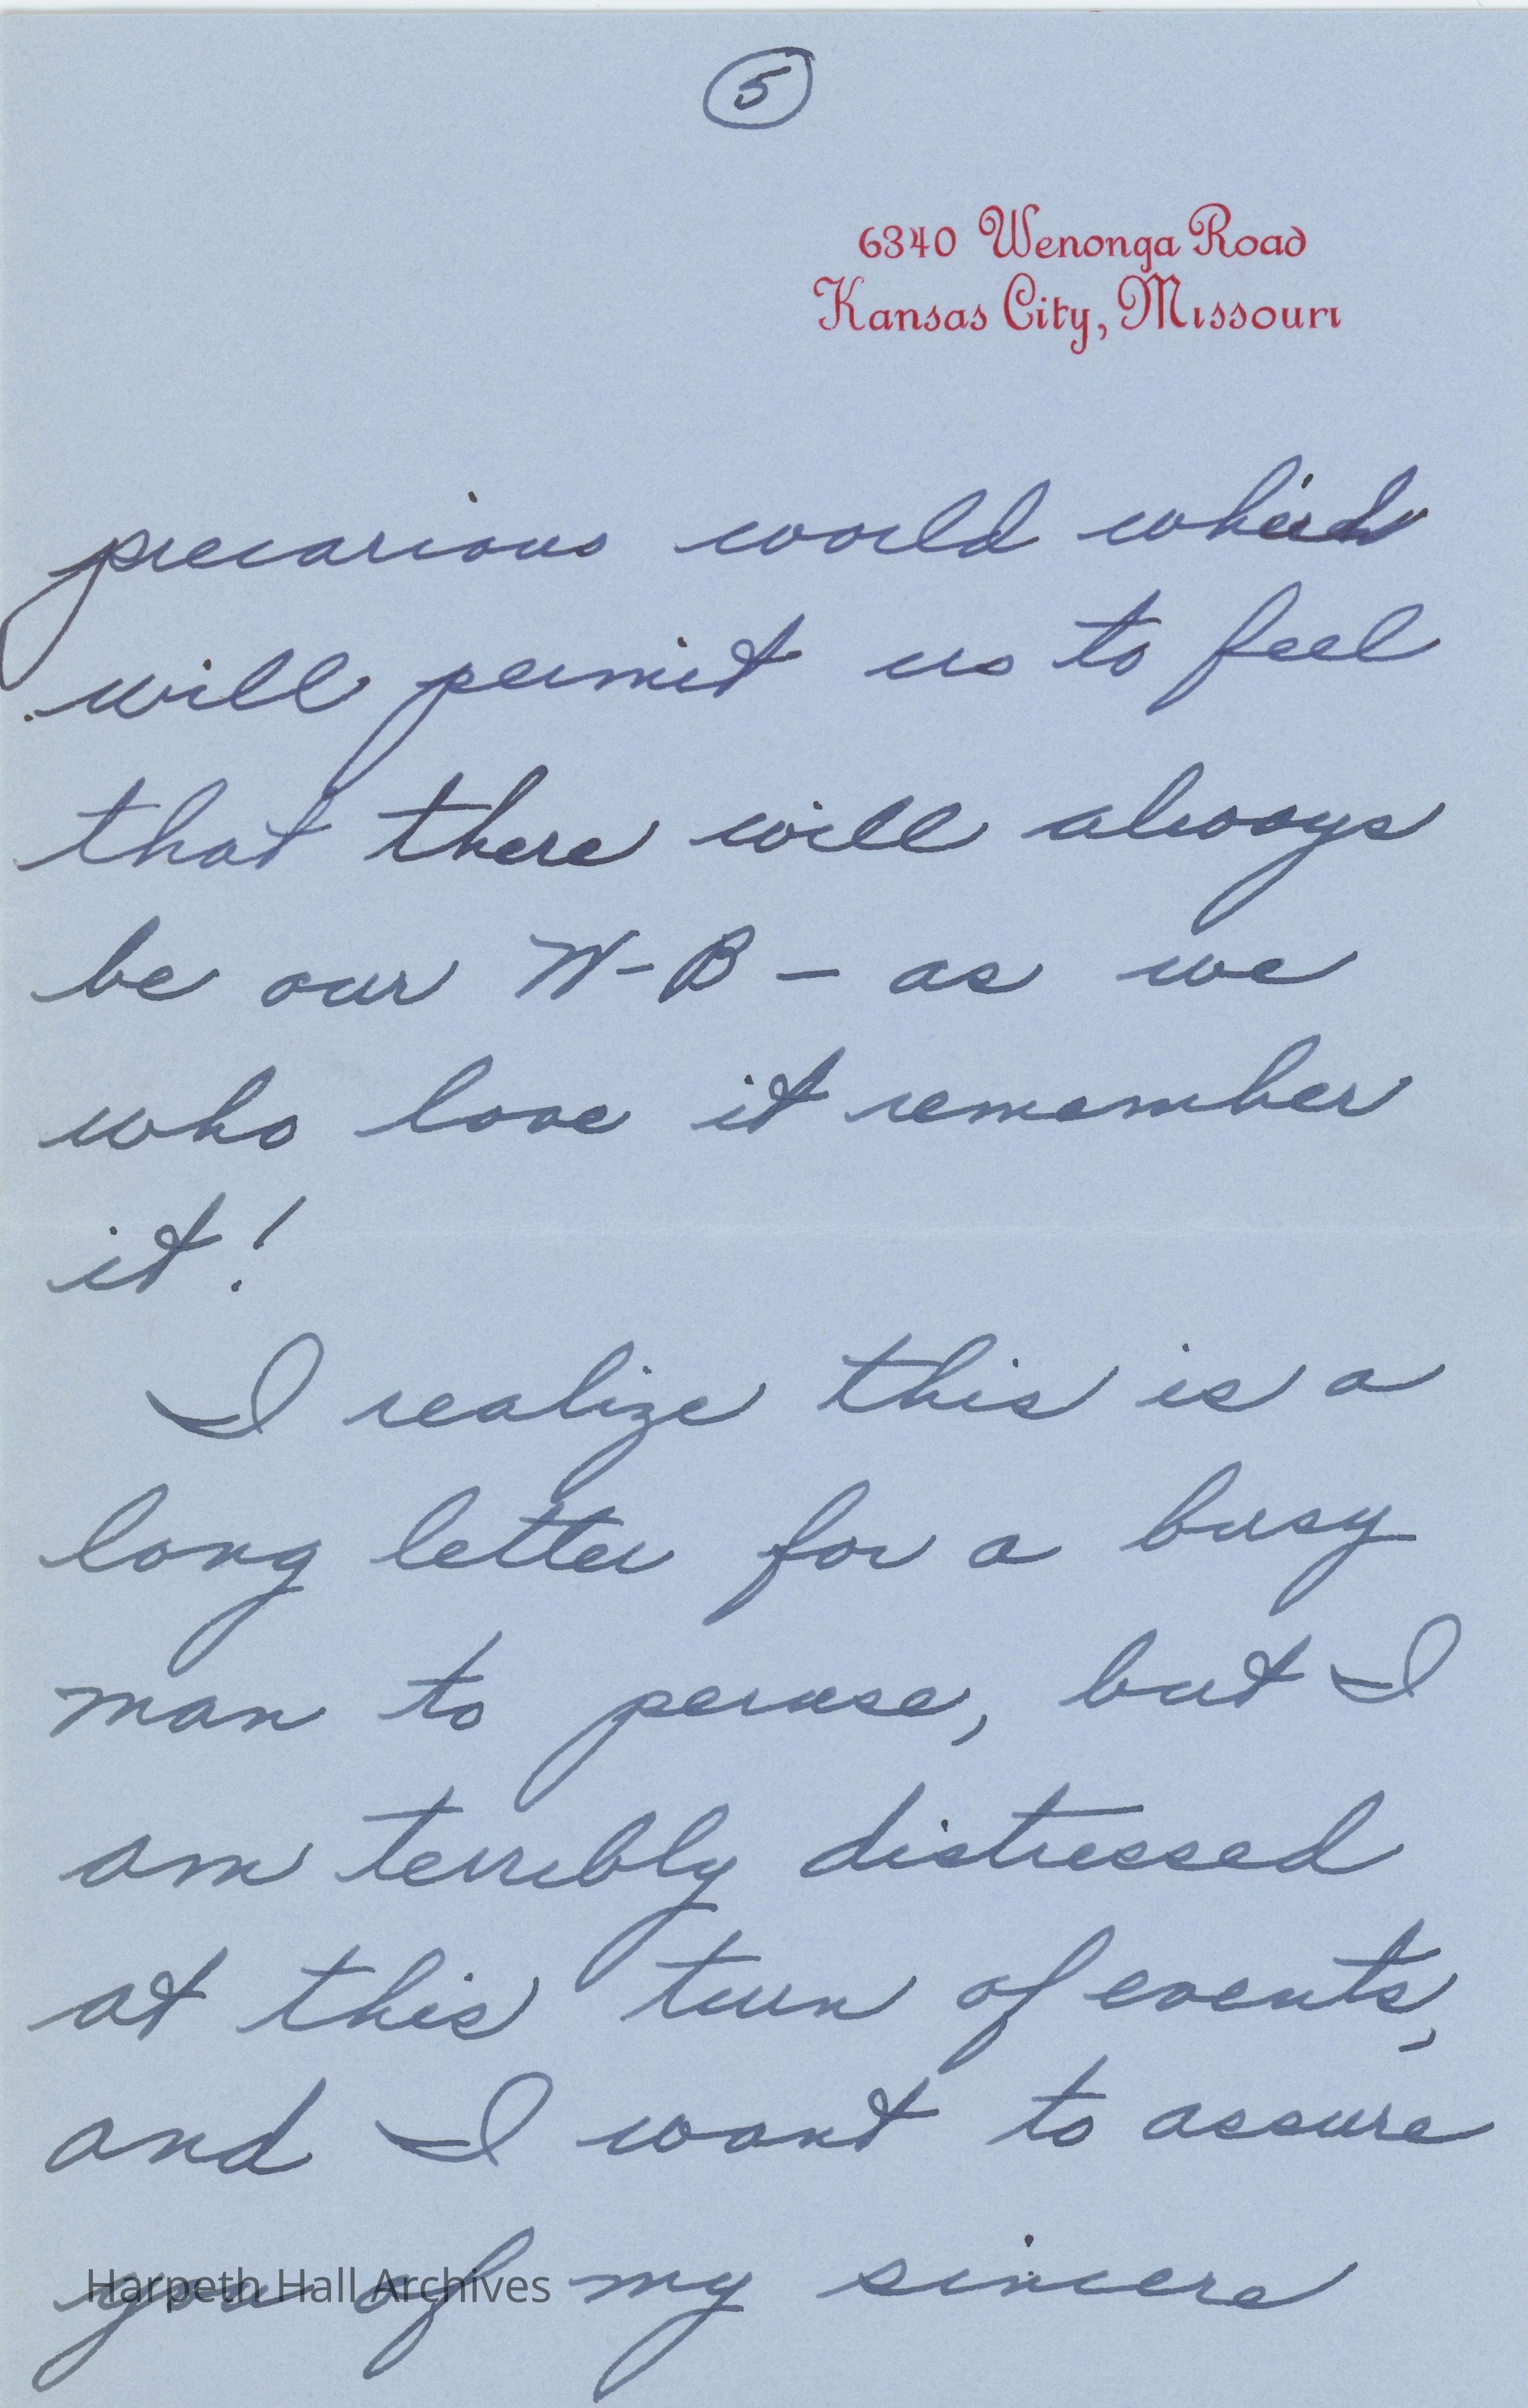 5
6340 Wenonga Road
Kansas City, Missouri
precarious world which
will permit us to feel
that there will always
be our W-B - as we
who love it remember
it!
I realize this is a
long letter for a busy
man to peruse, but I
am terribly distressed
at this turn of events,
and I want to assure
you of my sincere
Harpeth Hall Archives